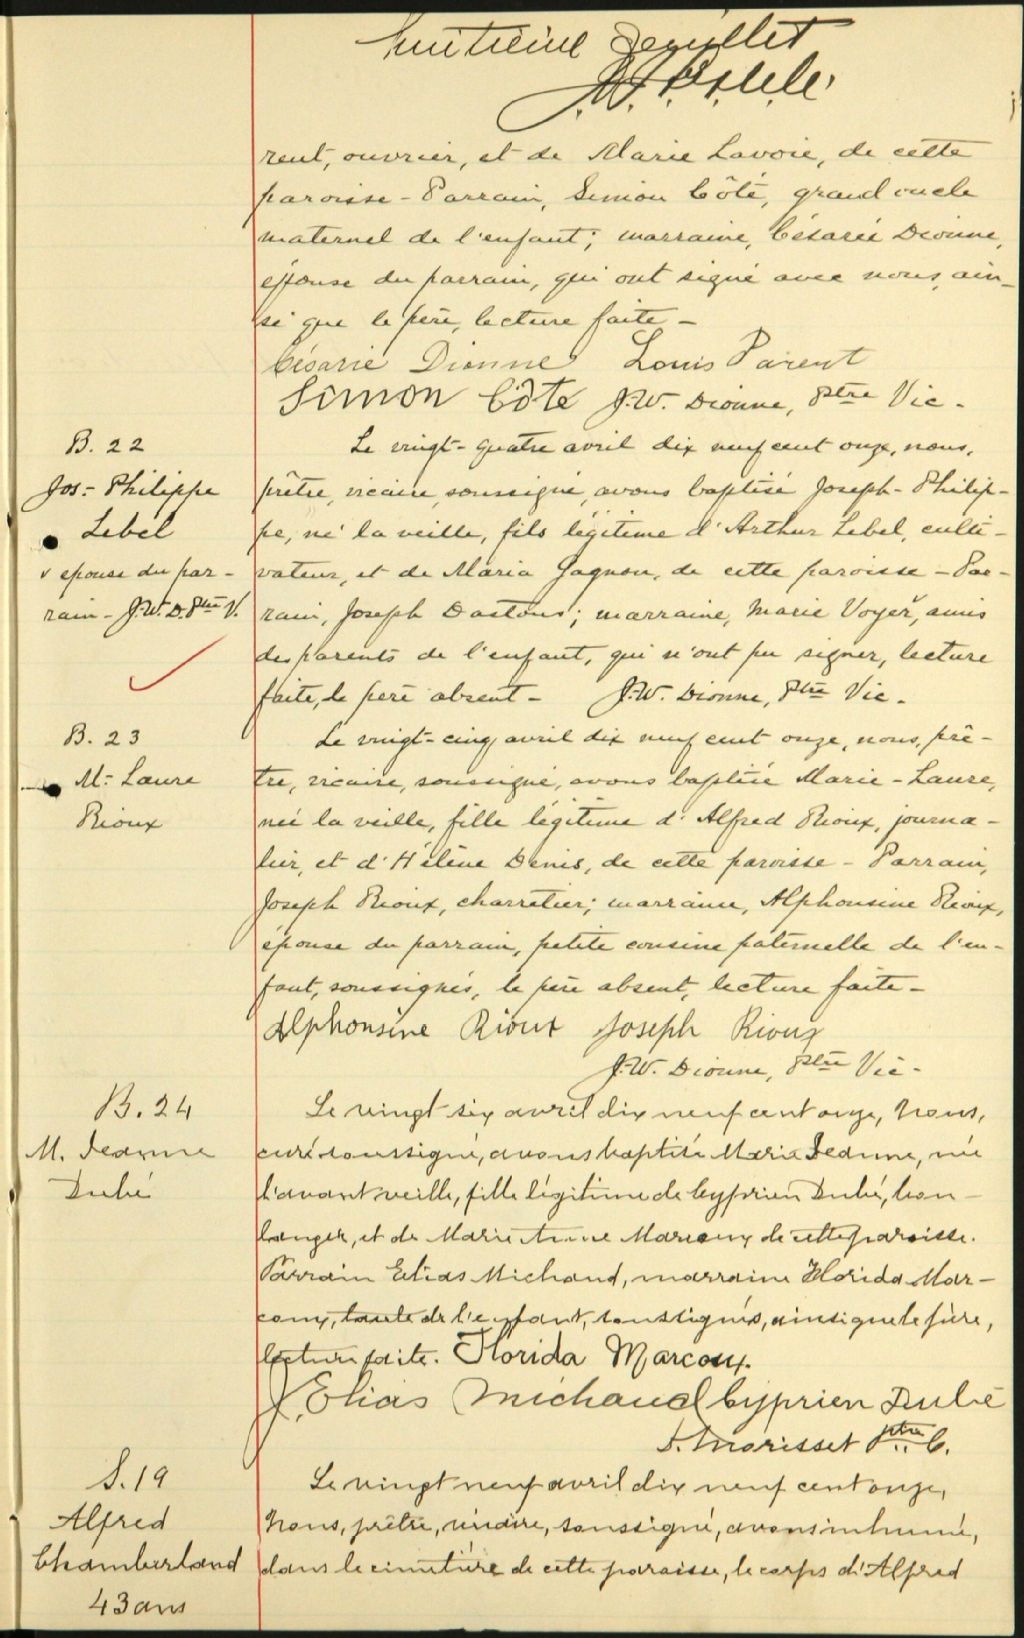 huitième feuillet
rent, ouvrier, et de Marie Lavoie, de cette
paroisse - Parrain, Simon Côté, grand oncle
maternel de l'enfant; marraine, Césarie Dionne,
épouse du parrain, qui ont signé avec nous, ain-
si que le père, lecture faite -
Césarie Dionne Louis Parent
Simon Côté J.W. Dionne, Ptre Vic.
B. 22
Jos.- Philippe
Lebel
v epouse du par-
rain - J.W.D. Ptre V.
Le vingt-quatre avril dix neuf cent onze, nous,
prêtre, vicaire, soussigné, avons baptisé Joseph-Philip-
pe, né la veille, fils légitime d'Arthur Lebel, culti-
vateur, et de Maria Gagnon, de cette paroisse - Par-
rain, Joseph Dastous; marraine, Marie Voyer v, amis
des parents de l'enfant, qui n'ont pu signer, lecture
faite, le père absent - J.W. Dionne, Ptre Vic.
B. 23
M.- Laure
Rioux
Le vingt-cinq avril dix neuf cent onze, nous, prê-
tre, vicaire, soussigné, avons baptisé Marie-Laure,
née la veille, fille légitime d'Alfred Rioux, journa-
lier, et d'Hélène Denis, de cette paroisse - Parrain,
Joseph Rioux, charretier; marraine, Alphonsine Rioux,
épouse du parrain, petite cousine paternelle de l'en-
fant, soussignés, le père absent, lecture faite -
Alphonsine Rioux Joseph Rioux
J.W. Dionne, Ptre Vic.
B. 24
M. Jeanne
Dubé
Le vingt six avril dix neuf cent onze, Nous,
curé soussigné, avons baptisé Marie Jeanne, née
l'avant veille, fille légitime de Cyprien Dubé, bou-
langer, et de Marie Anne Marcoux de cette paroisse.
Parrain Elias Michaud, marraine Florida Mar-
coux, tante de l'enfant, soussignés, ainsi que le père,
lecture faite. Florida Marcoux.
J. Elias Michaud Cyprien Dubé
Morisset ptre C.
S. 19
Alfred
Chamberland
43 ans
Le vingt neuf avril dix neuf cent onze,
Nous, prêtre, vicaire, soussigné, avons inhumé,
dans le cimetière de cette paroisse, le corps d'Alfred